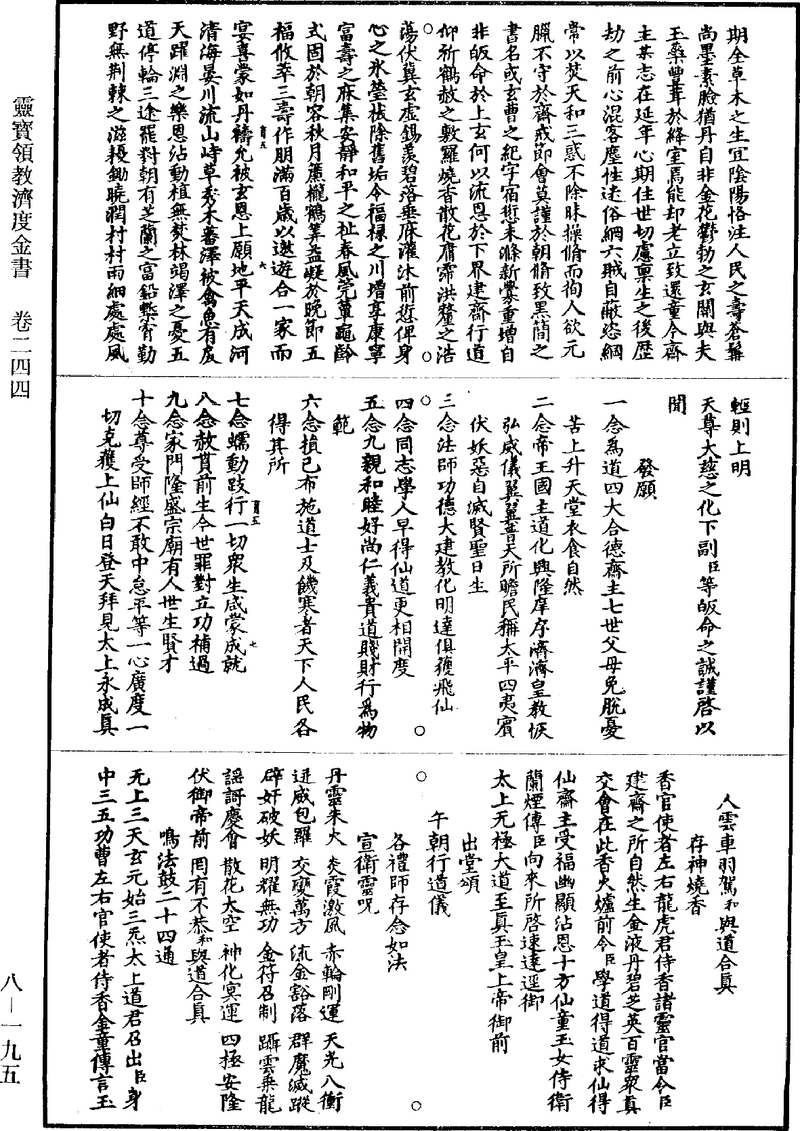 靈寶領教濟度金書　卷二四四
八－一九五
期全草木之生宜陰陽恪注人民之壽蒼鬢
尚墨素臉猶丹自非金花欝勃之玄關與夫
玉蘂豐葺於絳室焉能却老立致還童今齋
主某志在延年心期住世切慮稟生之後歷
劫之前心混客塵性迷俗網六賊自蔽恣網
常以焚天和三惑不除昧操脩而徇人欲元
臘不守於齋戒節會莫謹於朝脩致黑簡之
書名或玄曹之紀字宿愆未滌新釁重增自
非皈命於上玄何以流恩於下界建齋行道
仰祈鶴赦之敷羅燒香散花膺霈洪釐之浩
蕩伏冀玄虛錫羨碧落垂庥濯沐前愆俾身
心之氷瑩祓除舊垢令福祿之川增享康寧
富壽之庥集安靜和平之祉春風莞簟龜齡
式固於朝容秋月簾櫳鶴筭益凝於晚節五
福攸萃三壽作朋滿百歲以遨遊合一家而
宴喜蒙如丹禱允被玄恩上願地平天成河
清海晏川流山峙草秀木蕃澤被禽魚有戾
天躍淵之樂恩沾動植無焚林竭澤之憂五
道停輪三途罷對朝有芝蘭之富鉛槧宵勤
野無荊棘之滋耰鋤曉潤村村雨細處處風
輕則上明
天尊大慈之化下副臣等皈命之誠謹啓以
聞
發願
一念爲道四大合德齋主七世父母免脫憂
苦上升天堂衣食自然
二念帝王國主道化興隆庠序濟濟皇教恢
弘威儀翼翼普天所瞻民稱太平四夷賓
伏妖惡自滅賢聖日生
三念法師功德大建教化明達俱獲飛仙
四念同志學人早得仙道更相開度
五念九親和睦好尚仁義貴道賤財行爲物
範
六念損已布施道士及饑寒者天下人民各
得其所
七念蠕動跂行一切衆生咸蒙成就
八念赦貰前生今世罪對立功補過
九念家門隆盛宗廟有人世生賢才
十念尊受師經不敢中怠平等一心廣度一
切克獲上仙白日登天拜見太上永成真
人雲車羽駕和與道合真
存神燒香
香官使者左右龍虎君侍香諸靈官當令臣
建齋之所自然生金液丹碧芝英百靈衆真
交會在此香火爐前令臣學道得道求仙得
仙齋主受福幽顯沾恩十方仙童玉女侍衛
蘭煙傳臣向來所啓速達逕御
太上无極大道至真玉皇上帝御前
出堂頌
午朝行道儀
各禮師存念如法
宣衛靈呪
丹靈朱火　炎霞激風　赤輪剛運　天光八衝
迸威包羅　交變萬方　流金豁落　群魔滅蹤
辟奸破妖　明耀無功　金符召制　躡雲乘龍
謡謌慶會　散花太空　神化冥運　四極安隆
伏御帝前　罔有不恭和與道合真
鳴法鼓二十四通
无上三天玄元始三炁太上道君召出臣身
中三五功曹左右官使者侍香金童傳言玉